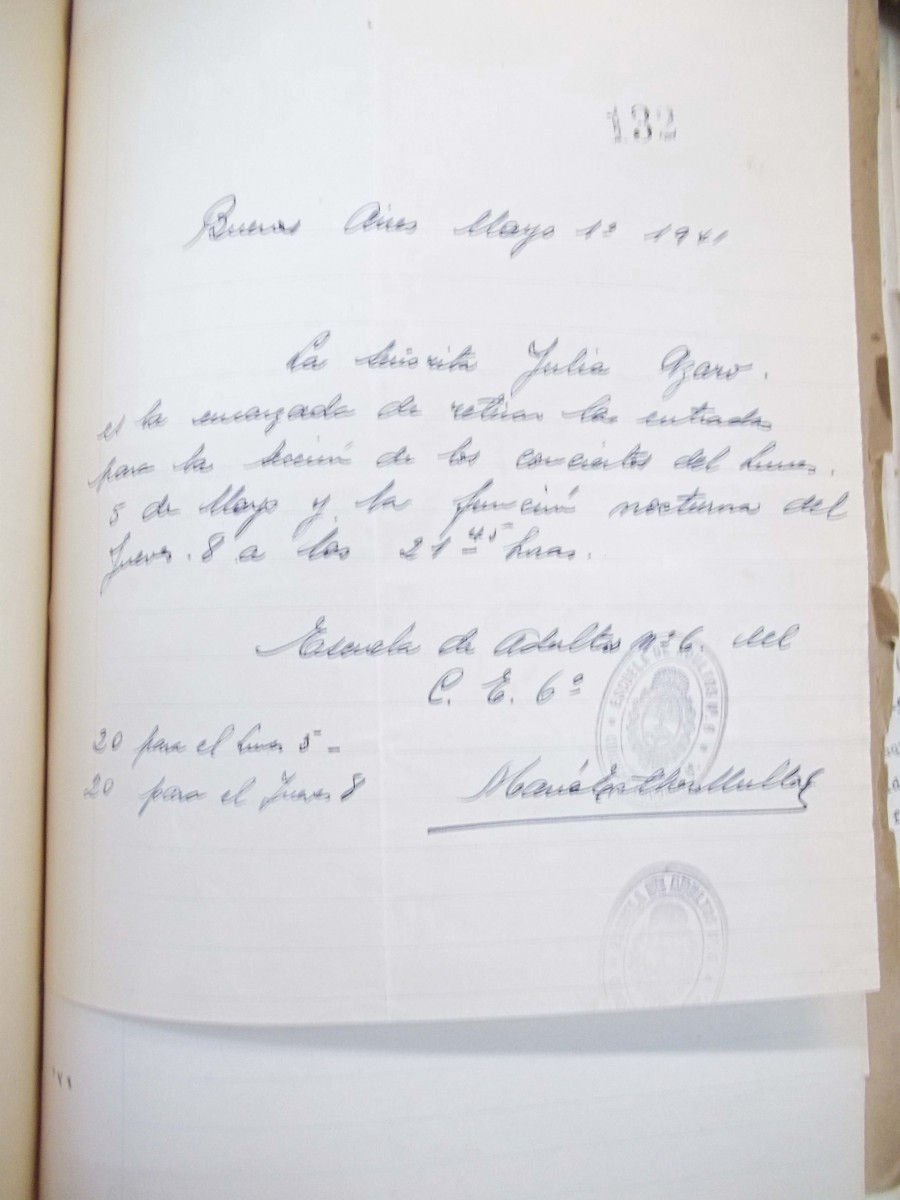 132
Buenos Aires Mayo 1º 1941
La Señorita Julia Azaro.
es la encargada de retirar las entradas
para la sección de los conciertos del Lunes.
5 de Mayo y la función nocturna del
Jueves. 8 a las 21 45 horas.
Escuela de Adultos nº 6. del
C. E. 6º
20 para el Lunes 5 =
20 para el Jueves 8
ESCUELA DE ADULTOS Nº 6
María Esther
ESCUELA DE ADULTOS Nº 6